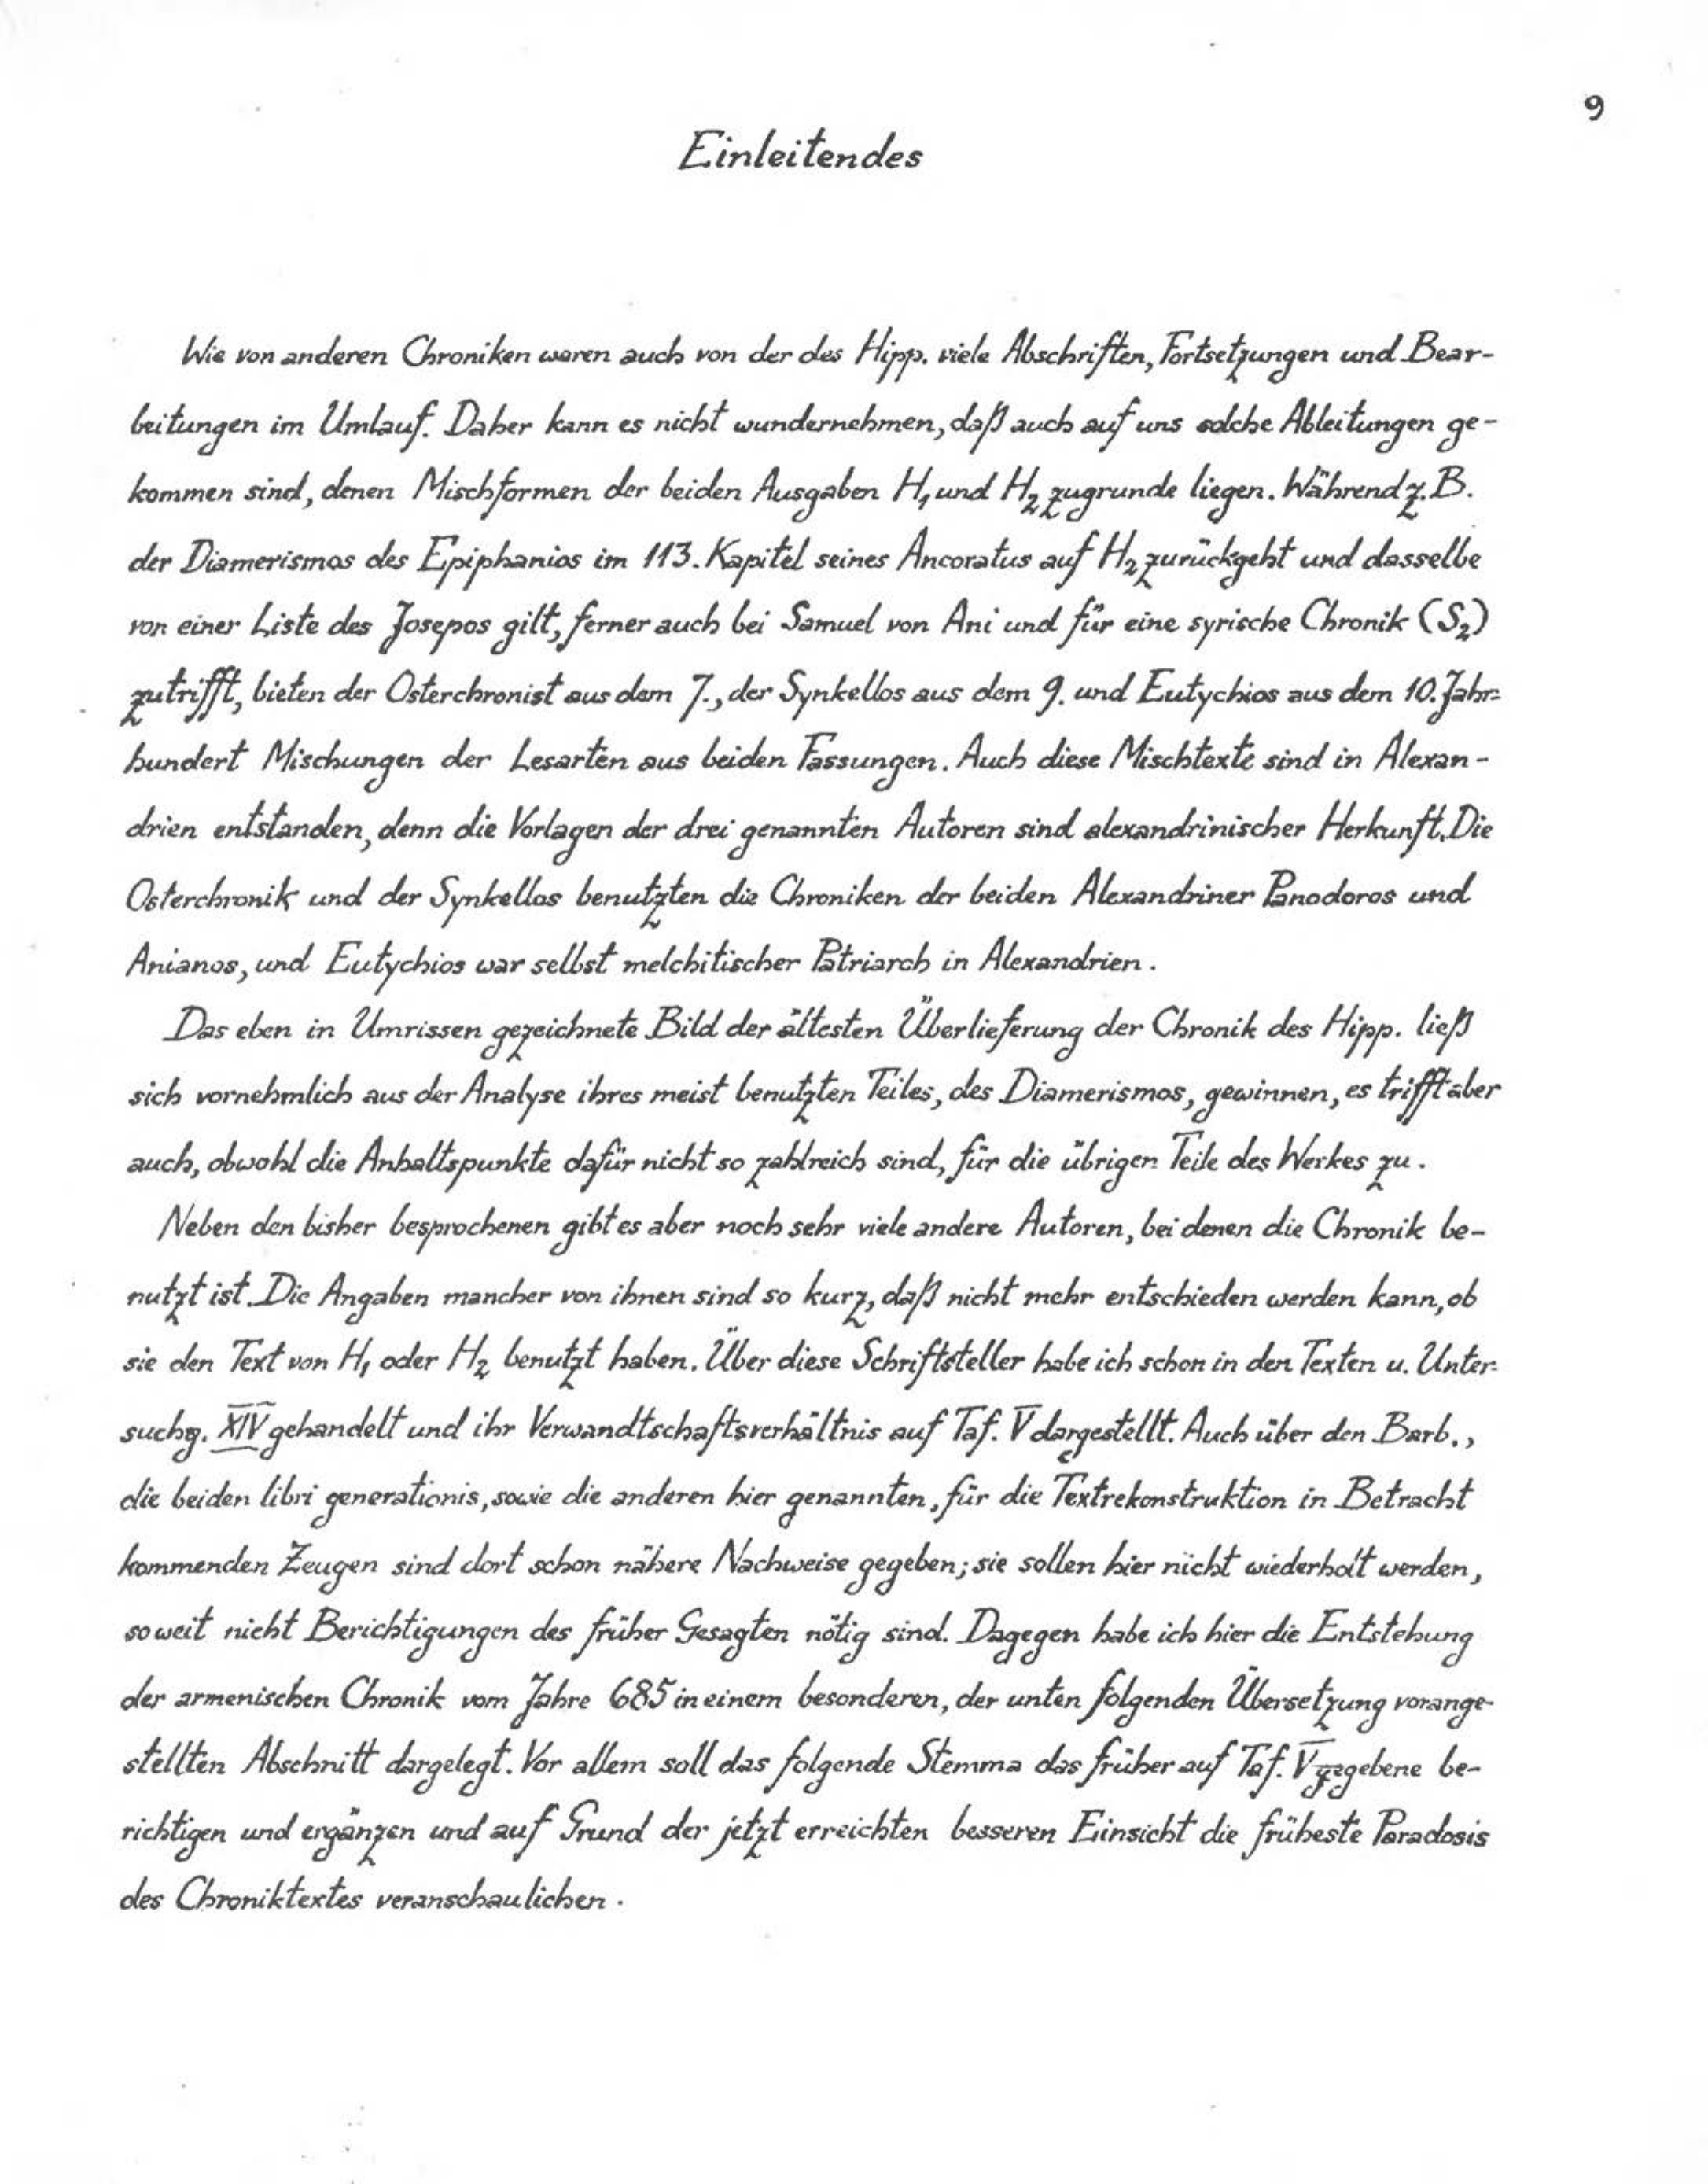 9
Einleitendes
Wie von anderen Chroniken waren auch von der des Hipp. viele Abschriften, Fortsetzungen und Bear-
beitungen im Umlauf. Daher kann es nicht wundernehmen, daß auch auf uns solche Ableitungen ge-
kommen sind, denen Mischformen der beiden Ausgaben H₁ und H₂ zugrunde liegen. Während z.B.
der Diamerismos des Epiphanios im 113. Kapitel seines Ancoratus auf H₂ zurückgeht und dasselbe
von einer Liste des Josepos gilt, ferner auch bei Samuel von Ani und für eine syrische Chronik (S₂)
zutrifft, bieten der Osterchronist aus dem 7., der Synkellos aus dem 9. und Eutychios aus dem 10. Jahr-
hundert Mischungen der Lesarten aus beiden Fassungen. Auch diese Mischtexte sind in Alexan-
drien entstanden, denn die Vorlagen der drei genannten Autoren sind alexandrinischer Herkunft. Die
Osterchronik und der Synkellos benutzten die Chroniken der beiden Alexandriner Panodoros und
Anianos, und Eutychios war selbst melchitischer Patriarch in Alexandrien.
Das eben in Umrissen gezeichnete Bild der ältesten Überlieferung der Chronik des Hipp. ließ
sich vornehmlich aus der Analyse ihres meist benutzten Teiles, des Diamerismos, gewinnen, es trifft aber
auch, obwohl die Anhaltspunkte dafür nicht so zahlreich sind, für die übrigen Teile des Werkes zu.
Neben den bisher besprochenen gibt es aber noch sehr viele andere Autoren, bei denen die Chronik be-
nutzt ist. Die Angaben mancher von ihnen sind so kurz, daß nicht mehr entschieden werden kann, ob
sie den Text von H₁ oder H₂ benutzt haben. Über diese Schriftsteller habe ich schon in den Texten u. Unter-
suchg. XIV gehandelt und ihr Verwandtschaftsverhältnis auf Taf. V dargestellt. Auch über den Barb.,
die beiden libri generationis, sowie die anderen hier genannten, für die Textrekonstruktion in Betracht
kommenden Zeugen sind dort schon nähere Nachweise gegeben; sie sollen hier nicht wiederholt werden,
soweit nicht Berichtigungen des früher Gesagten nötig sind. Dagegen habe ich hier die Entstehung
der armenischen Chronik vom Jahre 685 in einem besonderen, der unten folgenden Übersetzung vorange-
stellten Abschnitt dargelegt. Vor allem soll das folgende Stemma das früher auf Taf. V gegebene be-
richtigen und ergänzen und auf Grund der jetzt erreichten besseren Einsicht die früheste Paradosis
des Chroniktextes veranschaulichen.